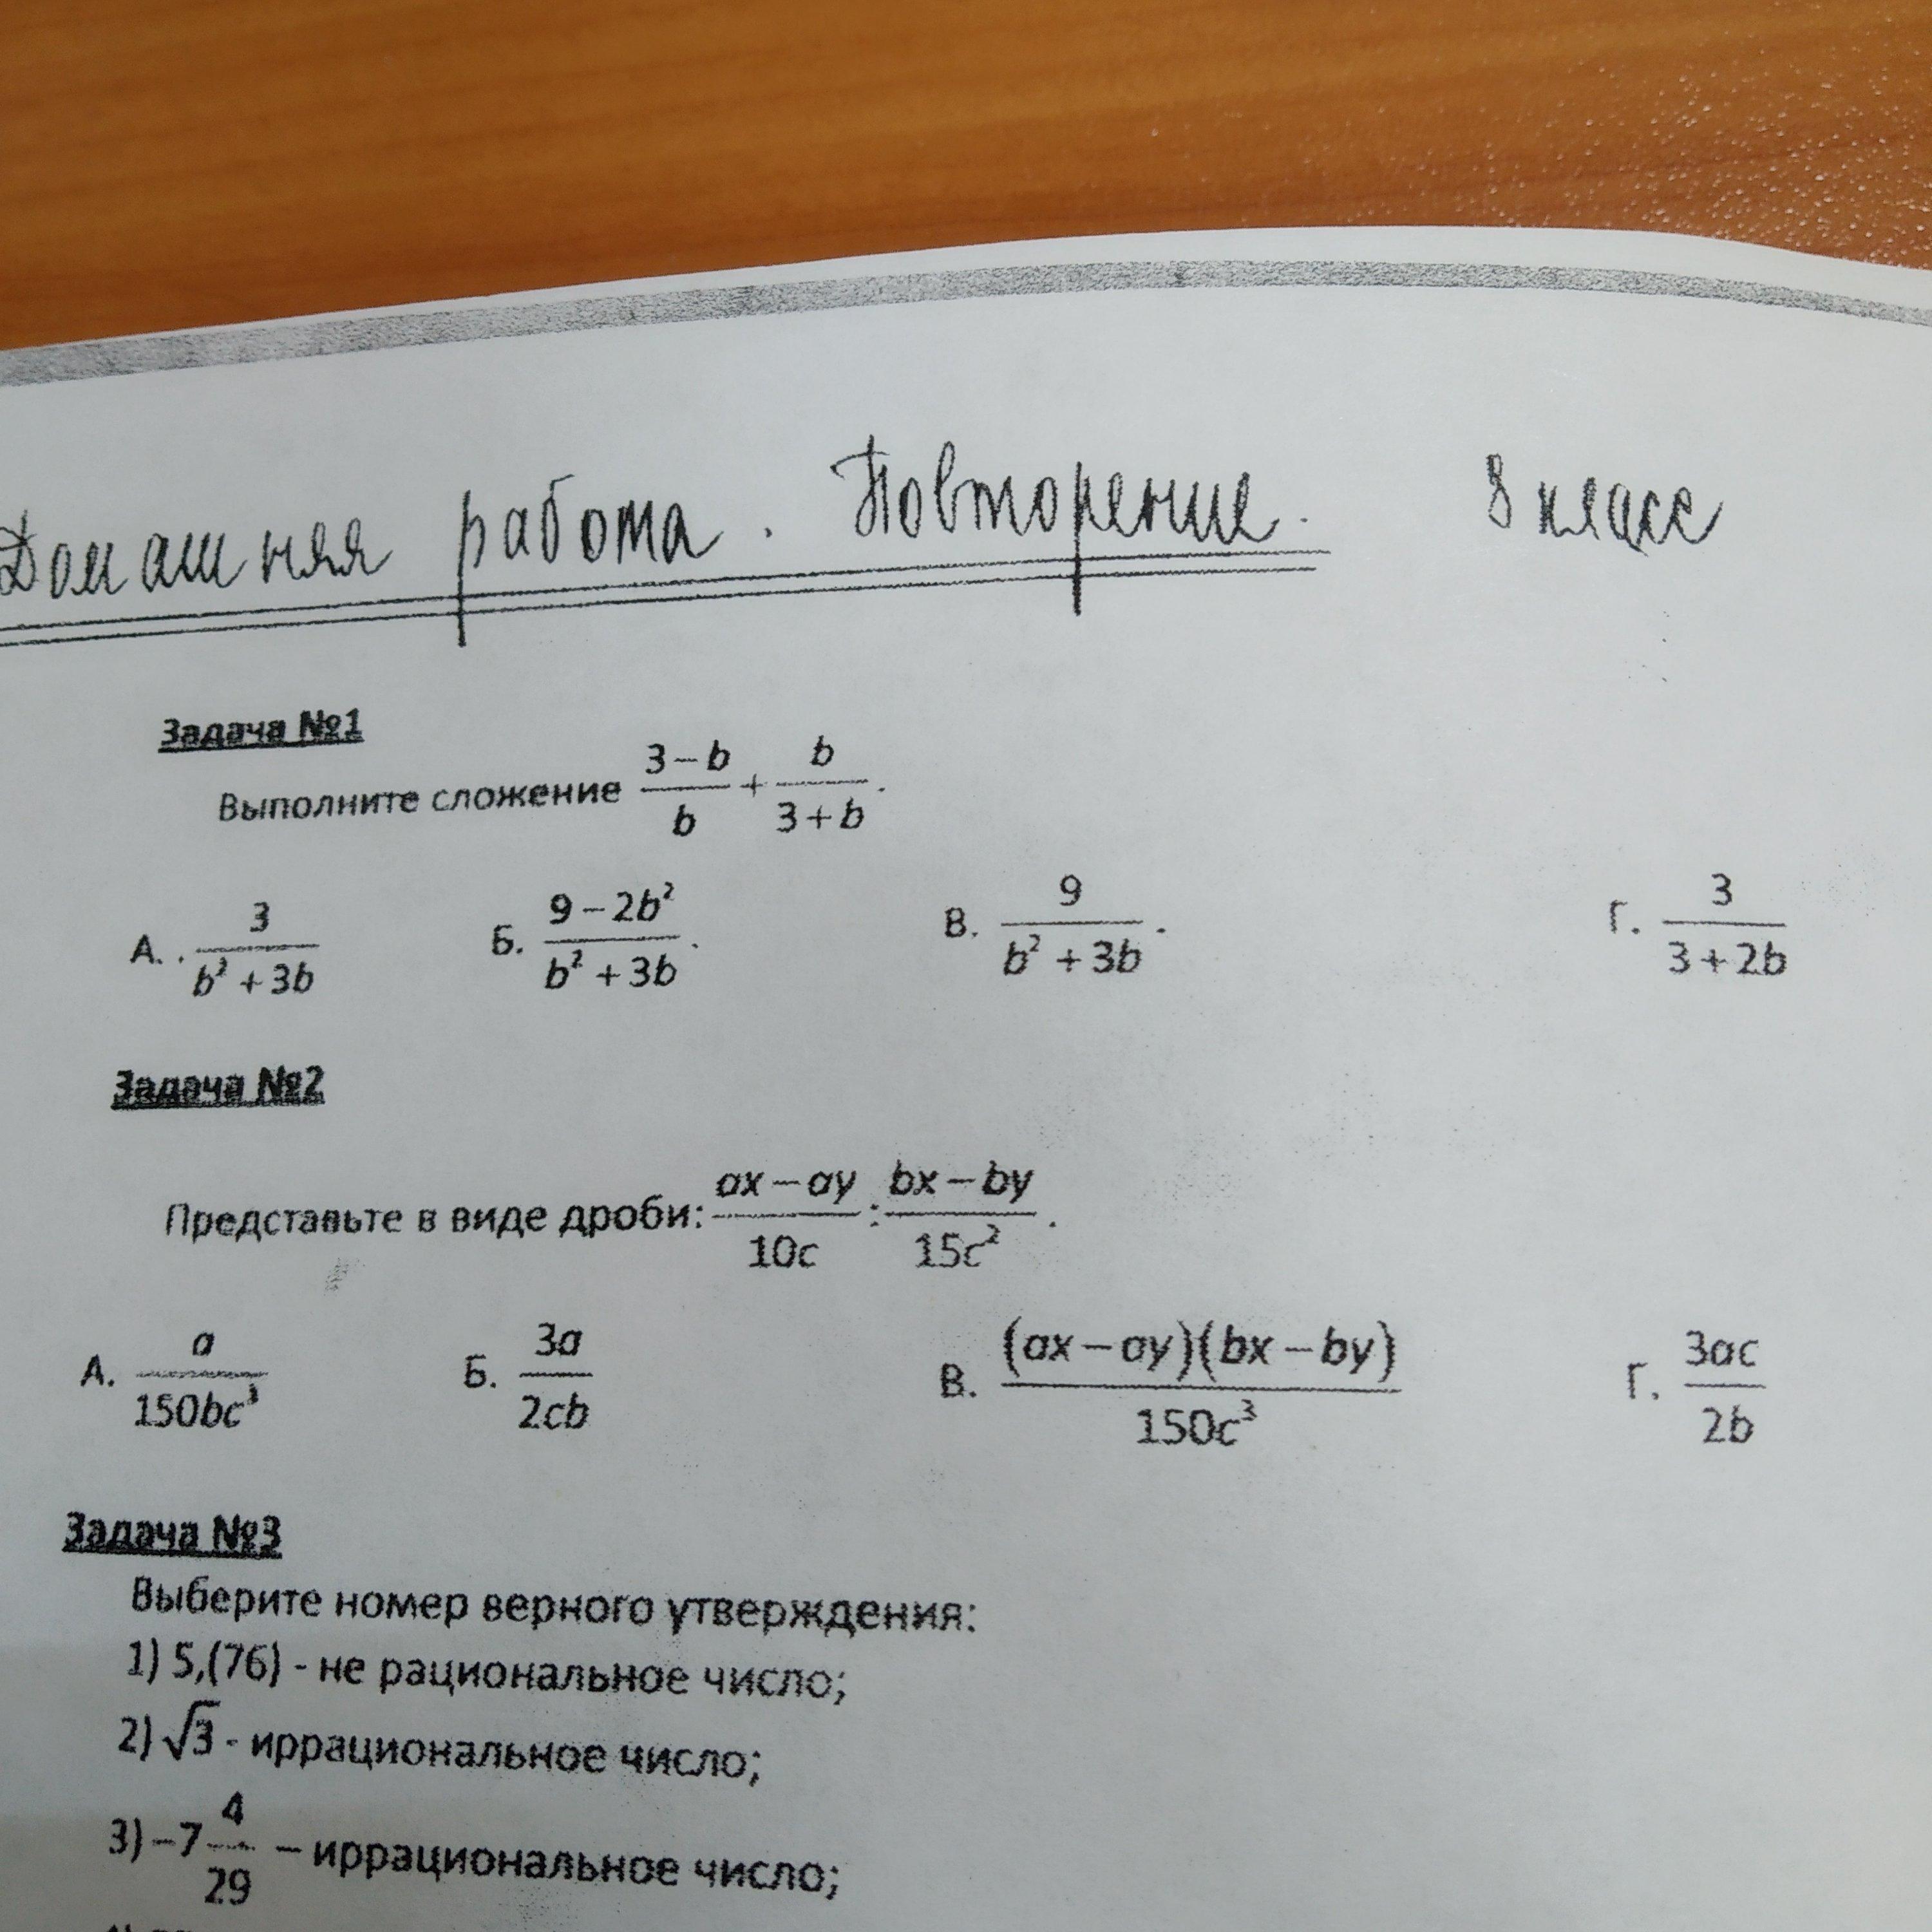 Домашняя работа. Повторение. 8 класс
Задача №1
Выполните сложение (3 − b)/b + b/(3 + b).
А. . 3/(b² + 3b) Б. (9 − 2b²)/(b² + 3b). В. 9/(b² + 3b). Г. 3/(3 + 2b)
Задача №2
Представьте в виде дроби: (ax − ay)/(10c) : (bx − by)/(15c²).
А. a/(150bc³) Б. 3a/(2cb) В. ((ax − ay)(bx − by))/(150c³) Г. 3ac/(2b)
Задача №3
Выберите номер верного утверждения:
1) 5,(76) - не рациональное число;
2) √3 - иррациональное число;
3) −7 4/29 – иррациональное число;